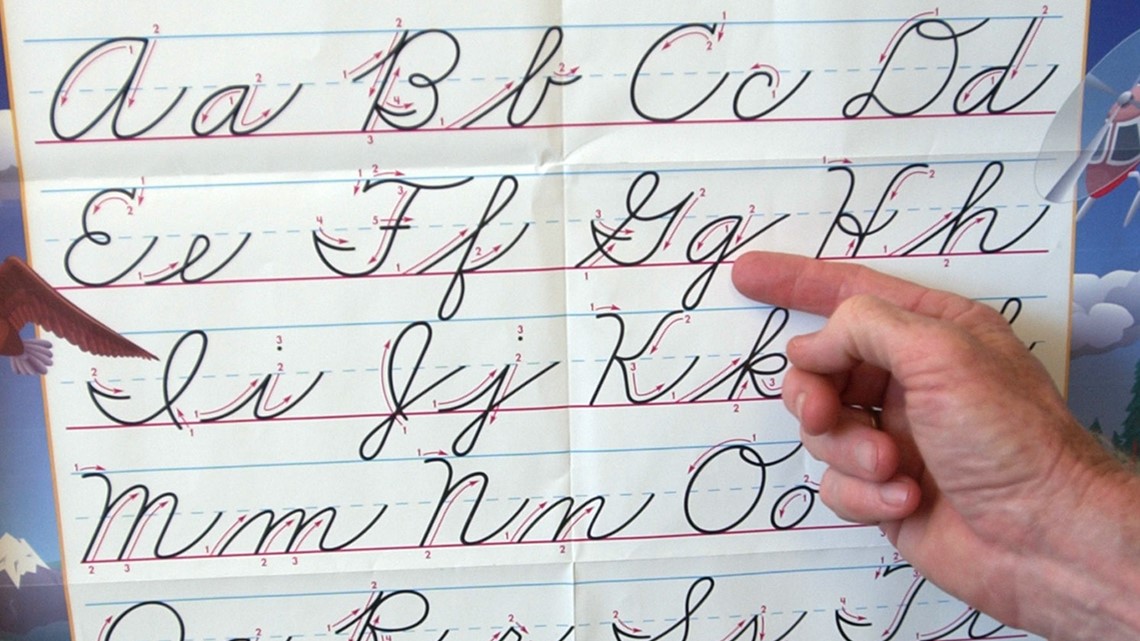 Aa Bb Cc Dd
Ee Ff Gg Hh
Ii Jj Kk
Mm Nn Oo